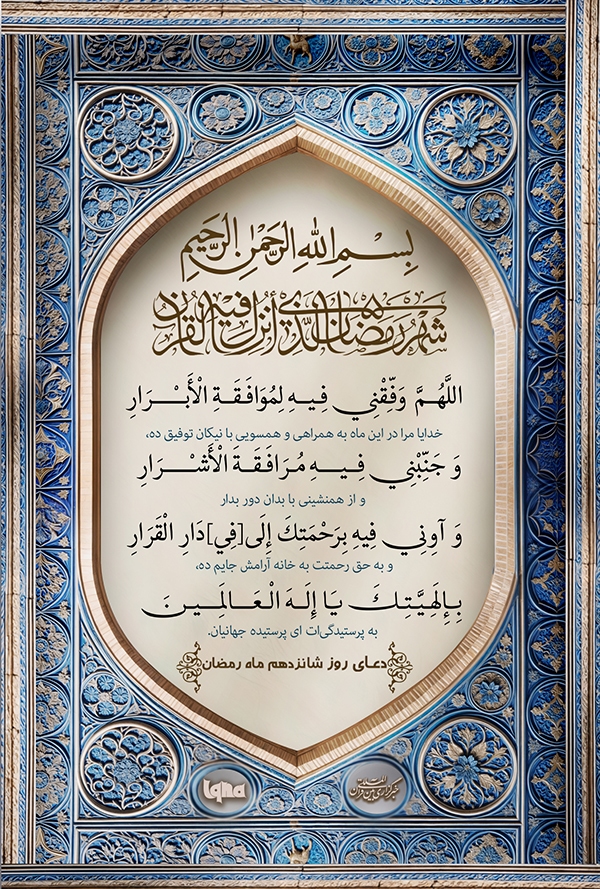 بِسْمِ اللهِ الرَّحْمٰنِ الرَّحِیمِ
شَهْرُ رَمَضَانَ الَّذِي أُنْزِلَ فِيهِ الْقُرْآنُ
اللَّهُمَّ وَفِّقْنِي فِيهِ لِمُوَافَقَةِ الْأَبْرَارِ
خدایا مرا در این ماه به همراهی و همسویی با نیکان توفیق ده،
وَ جَنِّبْنِي فِيهِ مُرَافَقَةَ الْأَشْرَارِ
و از همنشینی با بدان دور بدار
وَ آوِنِي فِيهِ بِرَحْمَتِكَ إِلَى[فِي]دَارِ الْقَرَارِ
و به حق رحمتت به خانه آرامش جایم ده،
بِإِلَهِيَّتِكَ يَا إِلَهَ الْعَالَمِينَ
به پرستیدگی‌ات ای پرستیده جهانیان.
دعای روز شانزدهم ماه رمضان
خبرگزاری بین المللی قرآن
iqna